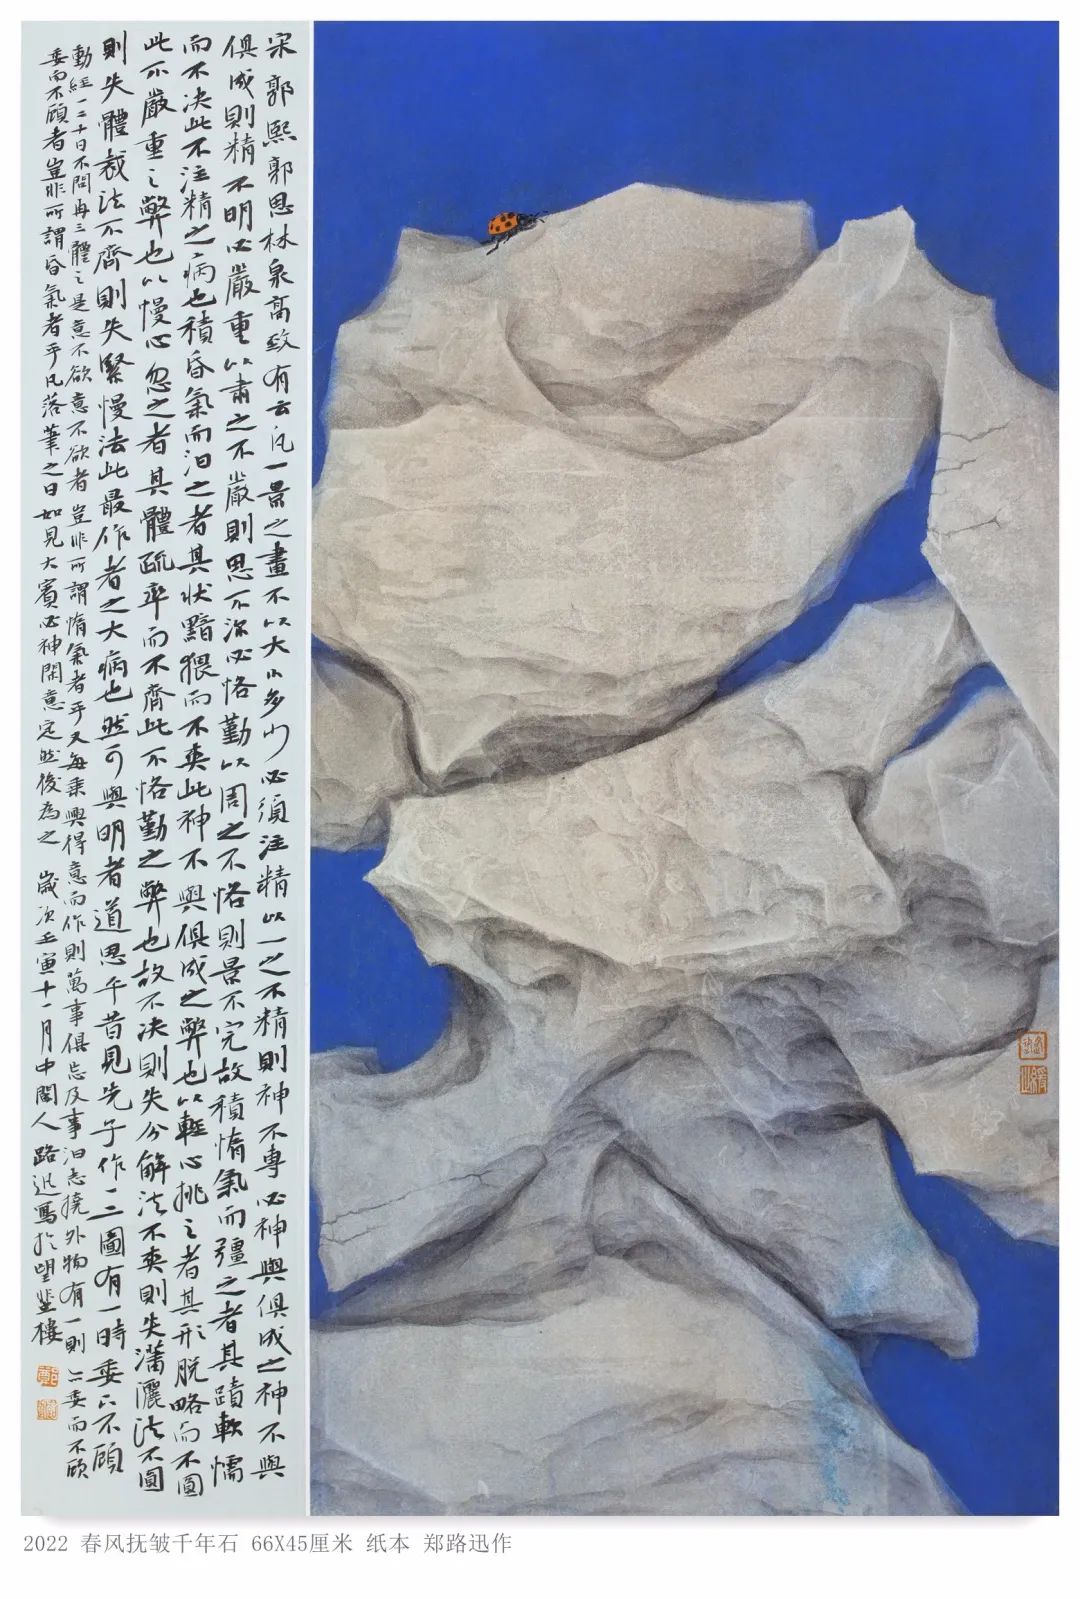 宋郭熙郭思林泉高致有云凡一景之畫不以大小多少必須注精以一之不精則神不專必神與俱成之神不與
俱成則精不明必嚴重以肅之不嚴則思不深必恪勤以周之不恪則景不完故積惰氣而彊之者其蹟軟懦
而不决此不注精之病也積昏氣而汩之者其狀黯猥而不爽此神不與俱成之弊也以輕心挑之者其形脱略而不圓
此不嚴重之弊也以慢心忽之者其體疏率而不齊此不恪勤之弊也故不决則失分解法不爽則失瀟灑法不圓
則失體裁法不齊則失緊慢法此最作者之大病也然可與明者道思平昔見先子作一二圖有一時委下不顧
動經一二十日不問再三體之是意不欲意不欲者豈非所謂惰氣者乎又每乘興得意而作則萬事俱忘及事汩志撓外物有一則亦委而不顧
委而不顧者豈非所謂昏氣者乎凡落筆之日如見大賓必神閑意定然後為之 歲次壬寅十一月中閩人路迅寫於望蜚樓
2022 春风抚皱千年石 66X45厘米 纸本 郑路迅作